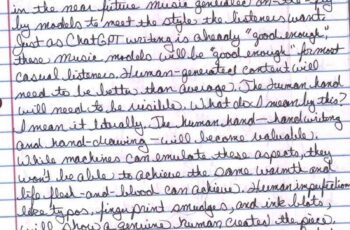 in the near future music generated on-the-fly
by models to meet the style the listeners want.
Just as ChatGPT writing is already "good enough,"
these music models will be "good enough" for most
casual listeners. Human-generated content will
need to be better than average. The human hand
will need to be visible. What do I mean by this?
I mean it literally. The human hand—handwriting
and hand-drawing—will become valuable.
While machines can emulate these aspects, they
won't be able to achieve the same warmth and
life flesh-and-blood can achieve. Human imperfections
like typos, fingerprint smudges, and ink blots,
will show a genuine human created the piece.